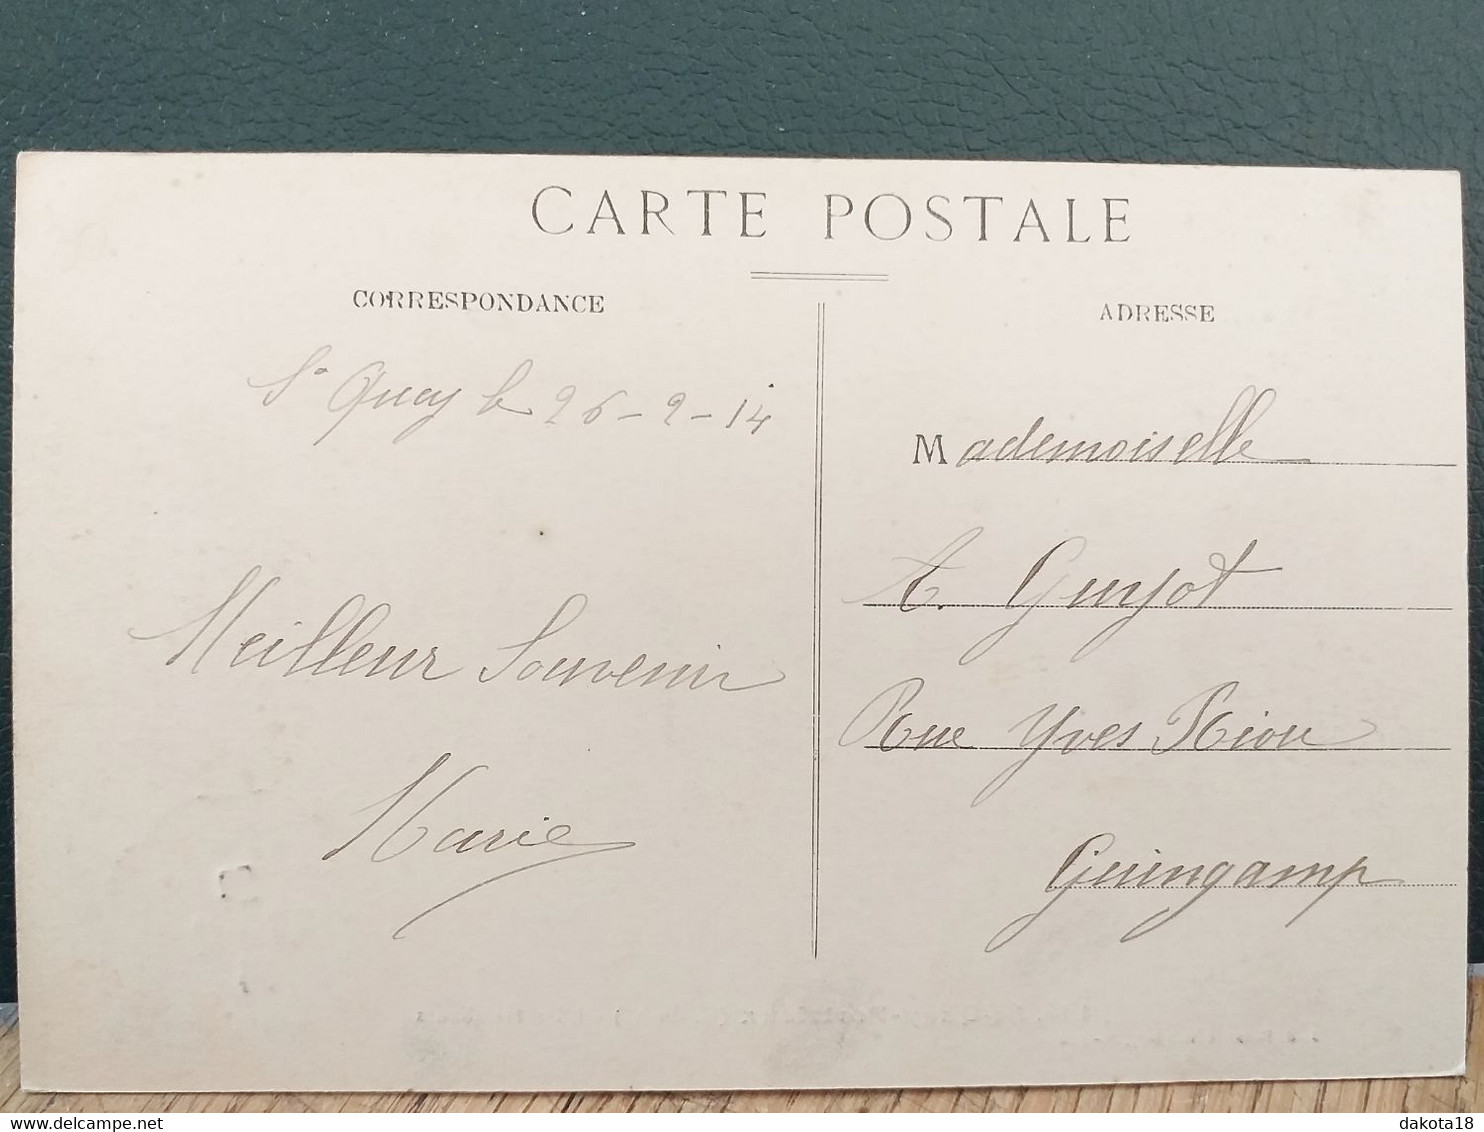 CARTE POSTALE
CORRESPONDANCE
St Quay le 26-2-14
Meilleur Souvenir
Marie
ADRESSE
Mademoiselle
A. Guyot
Rue Yves Riou
Guingamp
delcampe.net
dakota18